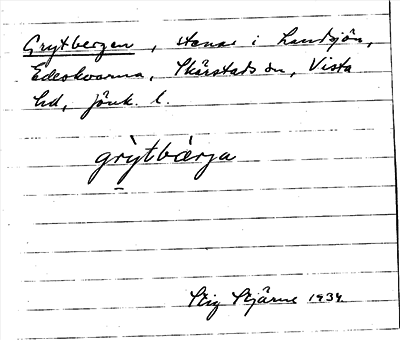 Grytbergen, stenar i Landsjön,
Edeskvarna, Skärstads sn, Vista
hd, Jönk. l.
grỳtbæ̀rja
Stig Stjärne 1934